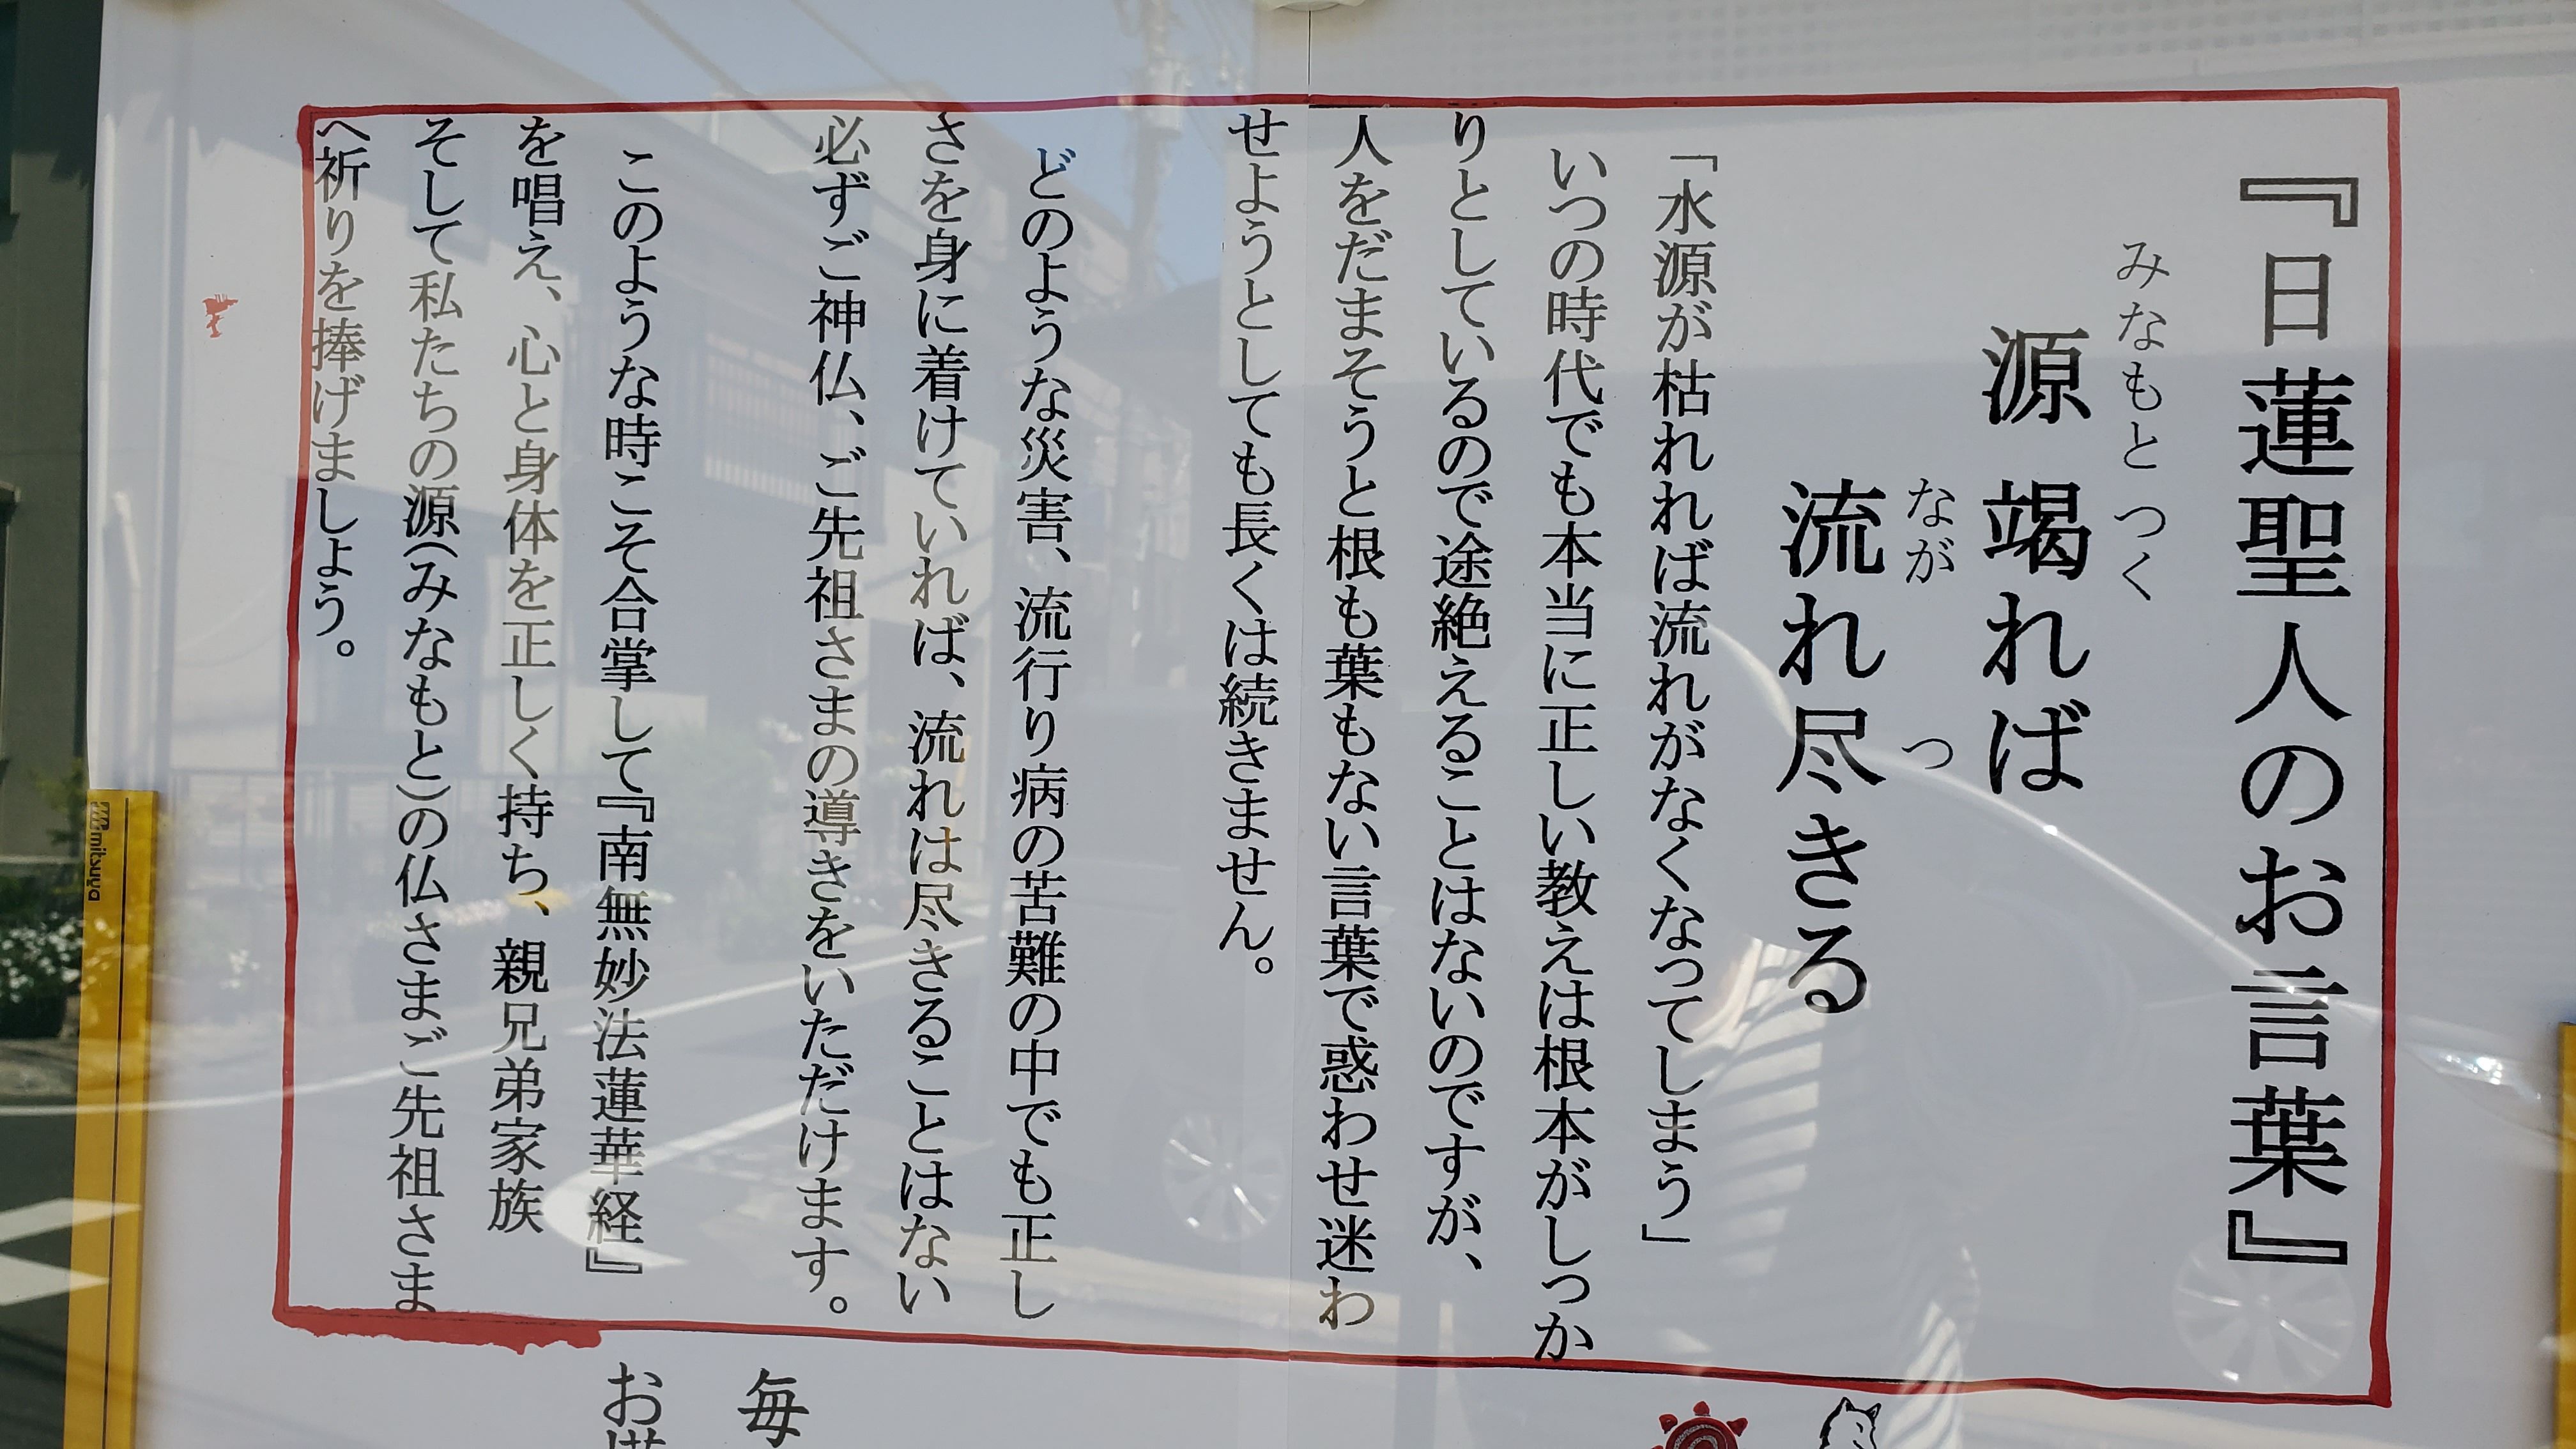 『日蓮聖人のお言葉』
みなもと つく
源 竭れば
なが つ
流れ尽きる
「水源が枯れれば流れがなくなってしまう」
いつの時代でも本当に正しい教えは根本がしっか
りとしているので途絶えることはないのですが、
人をだまそうと根も葉もない言葉で惑わせ迷わ
せようとしても長くは続きません。
どのような災害、流行り病の苦難の中でも正し
さを身に着けていれば、流れは尽きることはない
必ずご神仏、ご先祖さまの導きをいただけます。
このような時こそ合掌して『南無妙法蓮華経』
を唱え、心と身体を正しく持ち、親兄弟家族
そして私たちの源(みなもと)の仏さまご先祖さま
へ祈りを捧げましょう。
毎
お
mitsuya